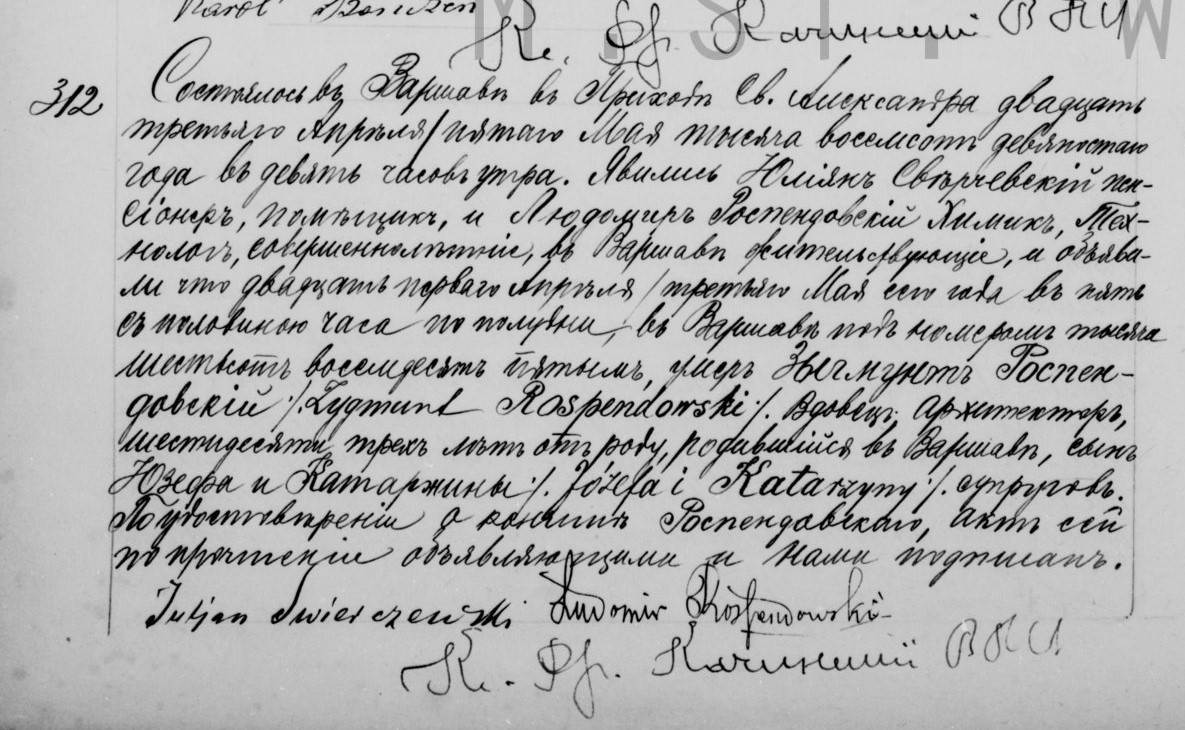 Karol
Кс. Фр.
312 Состоялось въ Варшавѣ въ Приходѣ Св. Александра двадцать
третьяго Апрѣля / пятаго Мая тысяча восемсотъ девяностаго
года въ девять часовъ утра. Явились Юліянъ Свѣрчевскій пен-
сіонеръ, помѣщикъ, и Людомиръ Роспендовскій Химикъ, Тех-
нологъ, совершеннолѣтніе, въ Варшавѣ жительствующіе, и объяви-
ли что двадцать перваго Апрѣля / третьяго Мая сего года въ пять
съ половиною часа по полудни, въ Варшавѣ подъ номеромъ тысяча
шестьсотъ восемдесятъ пятымъ, умеръ Зыгмунтъ Роспен-
довскій /. Zygmunt Rospendowski /. вдовецъ, архитекторъ,
шестидесяти трехъ лѣтъ отъ роду, родившійся въ Варшавѣ, сынъ
Юзефа и Катаржины /. Józefa i Katarzyny /. супруговъ.
По удостовѣреніи о кончинѣ Роспендовскаго, актъ сей
по прочтеніи объявляющими и нами подписанъ.
Juljan Swierczewski Ludomir Rospendowski
Кс. Фр.